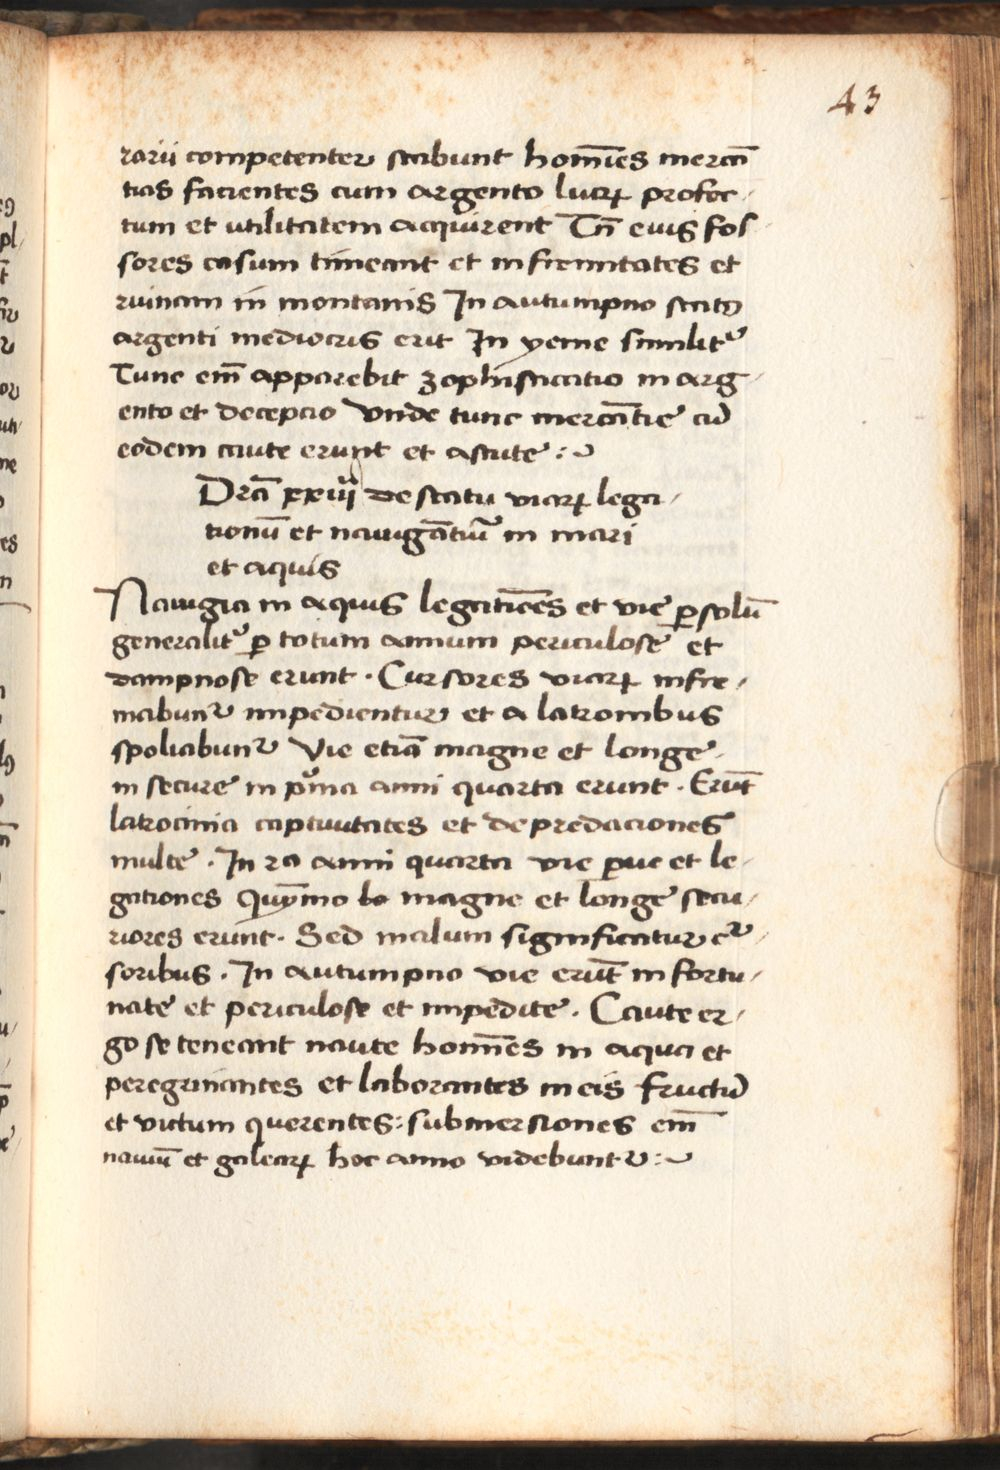 43
rarii competenter stabunt homīes mercā
tias facientes cum argento lucꝝ profec-
tum et utilitatem acquirent Tn̄ eius fos
sores casum timeant et infirmitates et
ruinam in montanis In autumpno statꝰ
argenti mediocris erit In yeme similit᷑
Tunc em̄ apparebit zophisticatio in arg-
ento et decepcio Vnde tunc mercātie cū
eodem caute erunt et astute :~
Dr̄a xxiij de statu viarꝝ lega-
tionū et nauigātiū in mari
et aquis
Nauigia in aquis legatiōes et vie ꝑ solū
generalit᷑ ꝑ totum annum periculose et
dampnose erunt . Cursores viarꝝ infir-
mabunt᷑ impedientur et a latronibus
spoliabunt᷑ Vie etiā magne et longe
in secure in pͥma anni quarta erunt . Erūt
latrocinia captiuitates et depredaciones
multe . In 2a anni quarta vie ꝑue et le-
gationes Quȳmo magne et longe secu-
riores erunt . Sed malum significatur c᷑-
soribus . In autumpno vie erūt in fortu-
nate et periculose et impedite . Caute er-
go se teneant naute homīes in aqua et
peregrinantes et laborantes in eis fructū
et victum querentes : submersiones em̄
nauiū et galearꝝ hoc anno videbunt᷑ :~